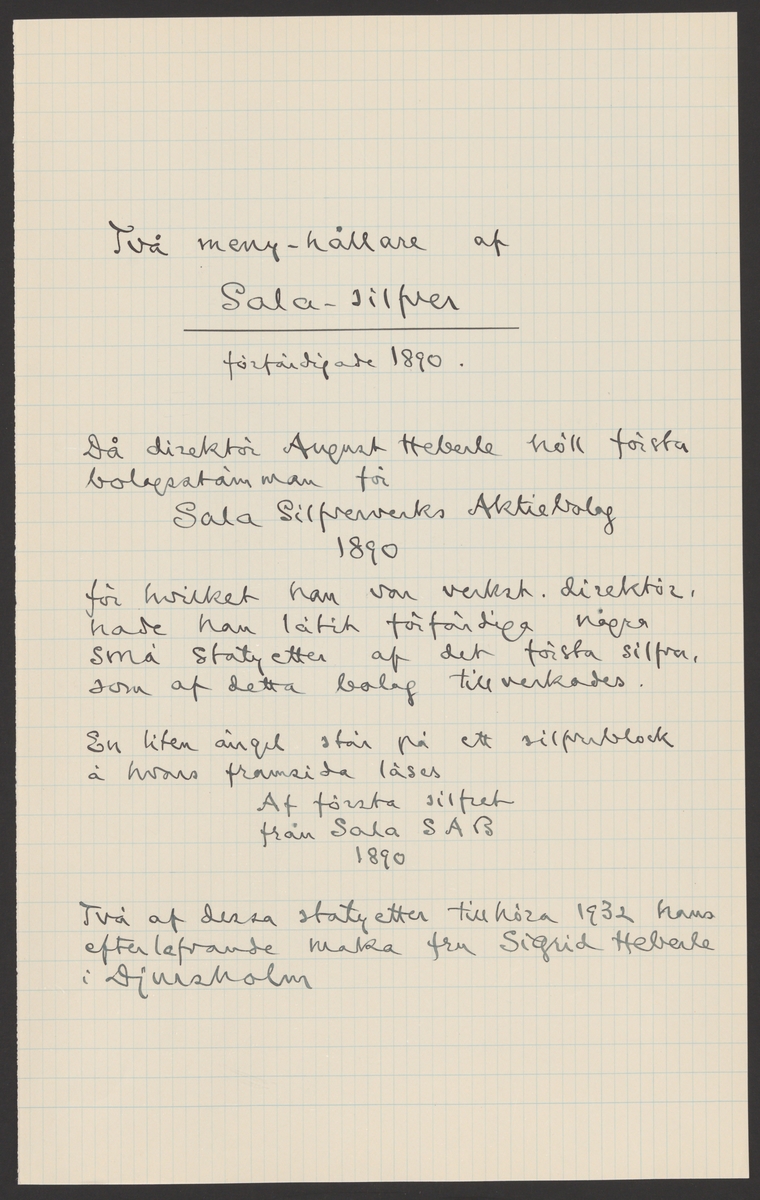 Två meny-hållare af
Sala-silfver
förfärdigade 1890.
Då direktör August Heberle höll första
bolagsstämman för
Sala Silfververks Aktiebolag
1890
för hvilket han var verkst. direktör,
hade han låtit förfärdiga några
små statyetter af det första silfver,
som af detta bolag tillverkades.
En liten ängel står på ett silfverblock
å hvars framsida läses
Af första silfret
från Sala SAB
1890
Två af dessa statyetter tillhöra 1932 hans
efterlefvande maka fru Sigrid Heberle
i Djursholm